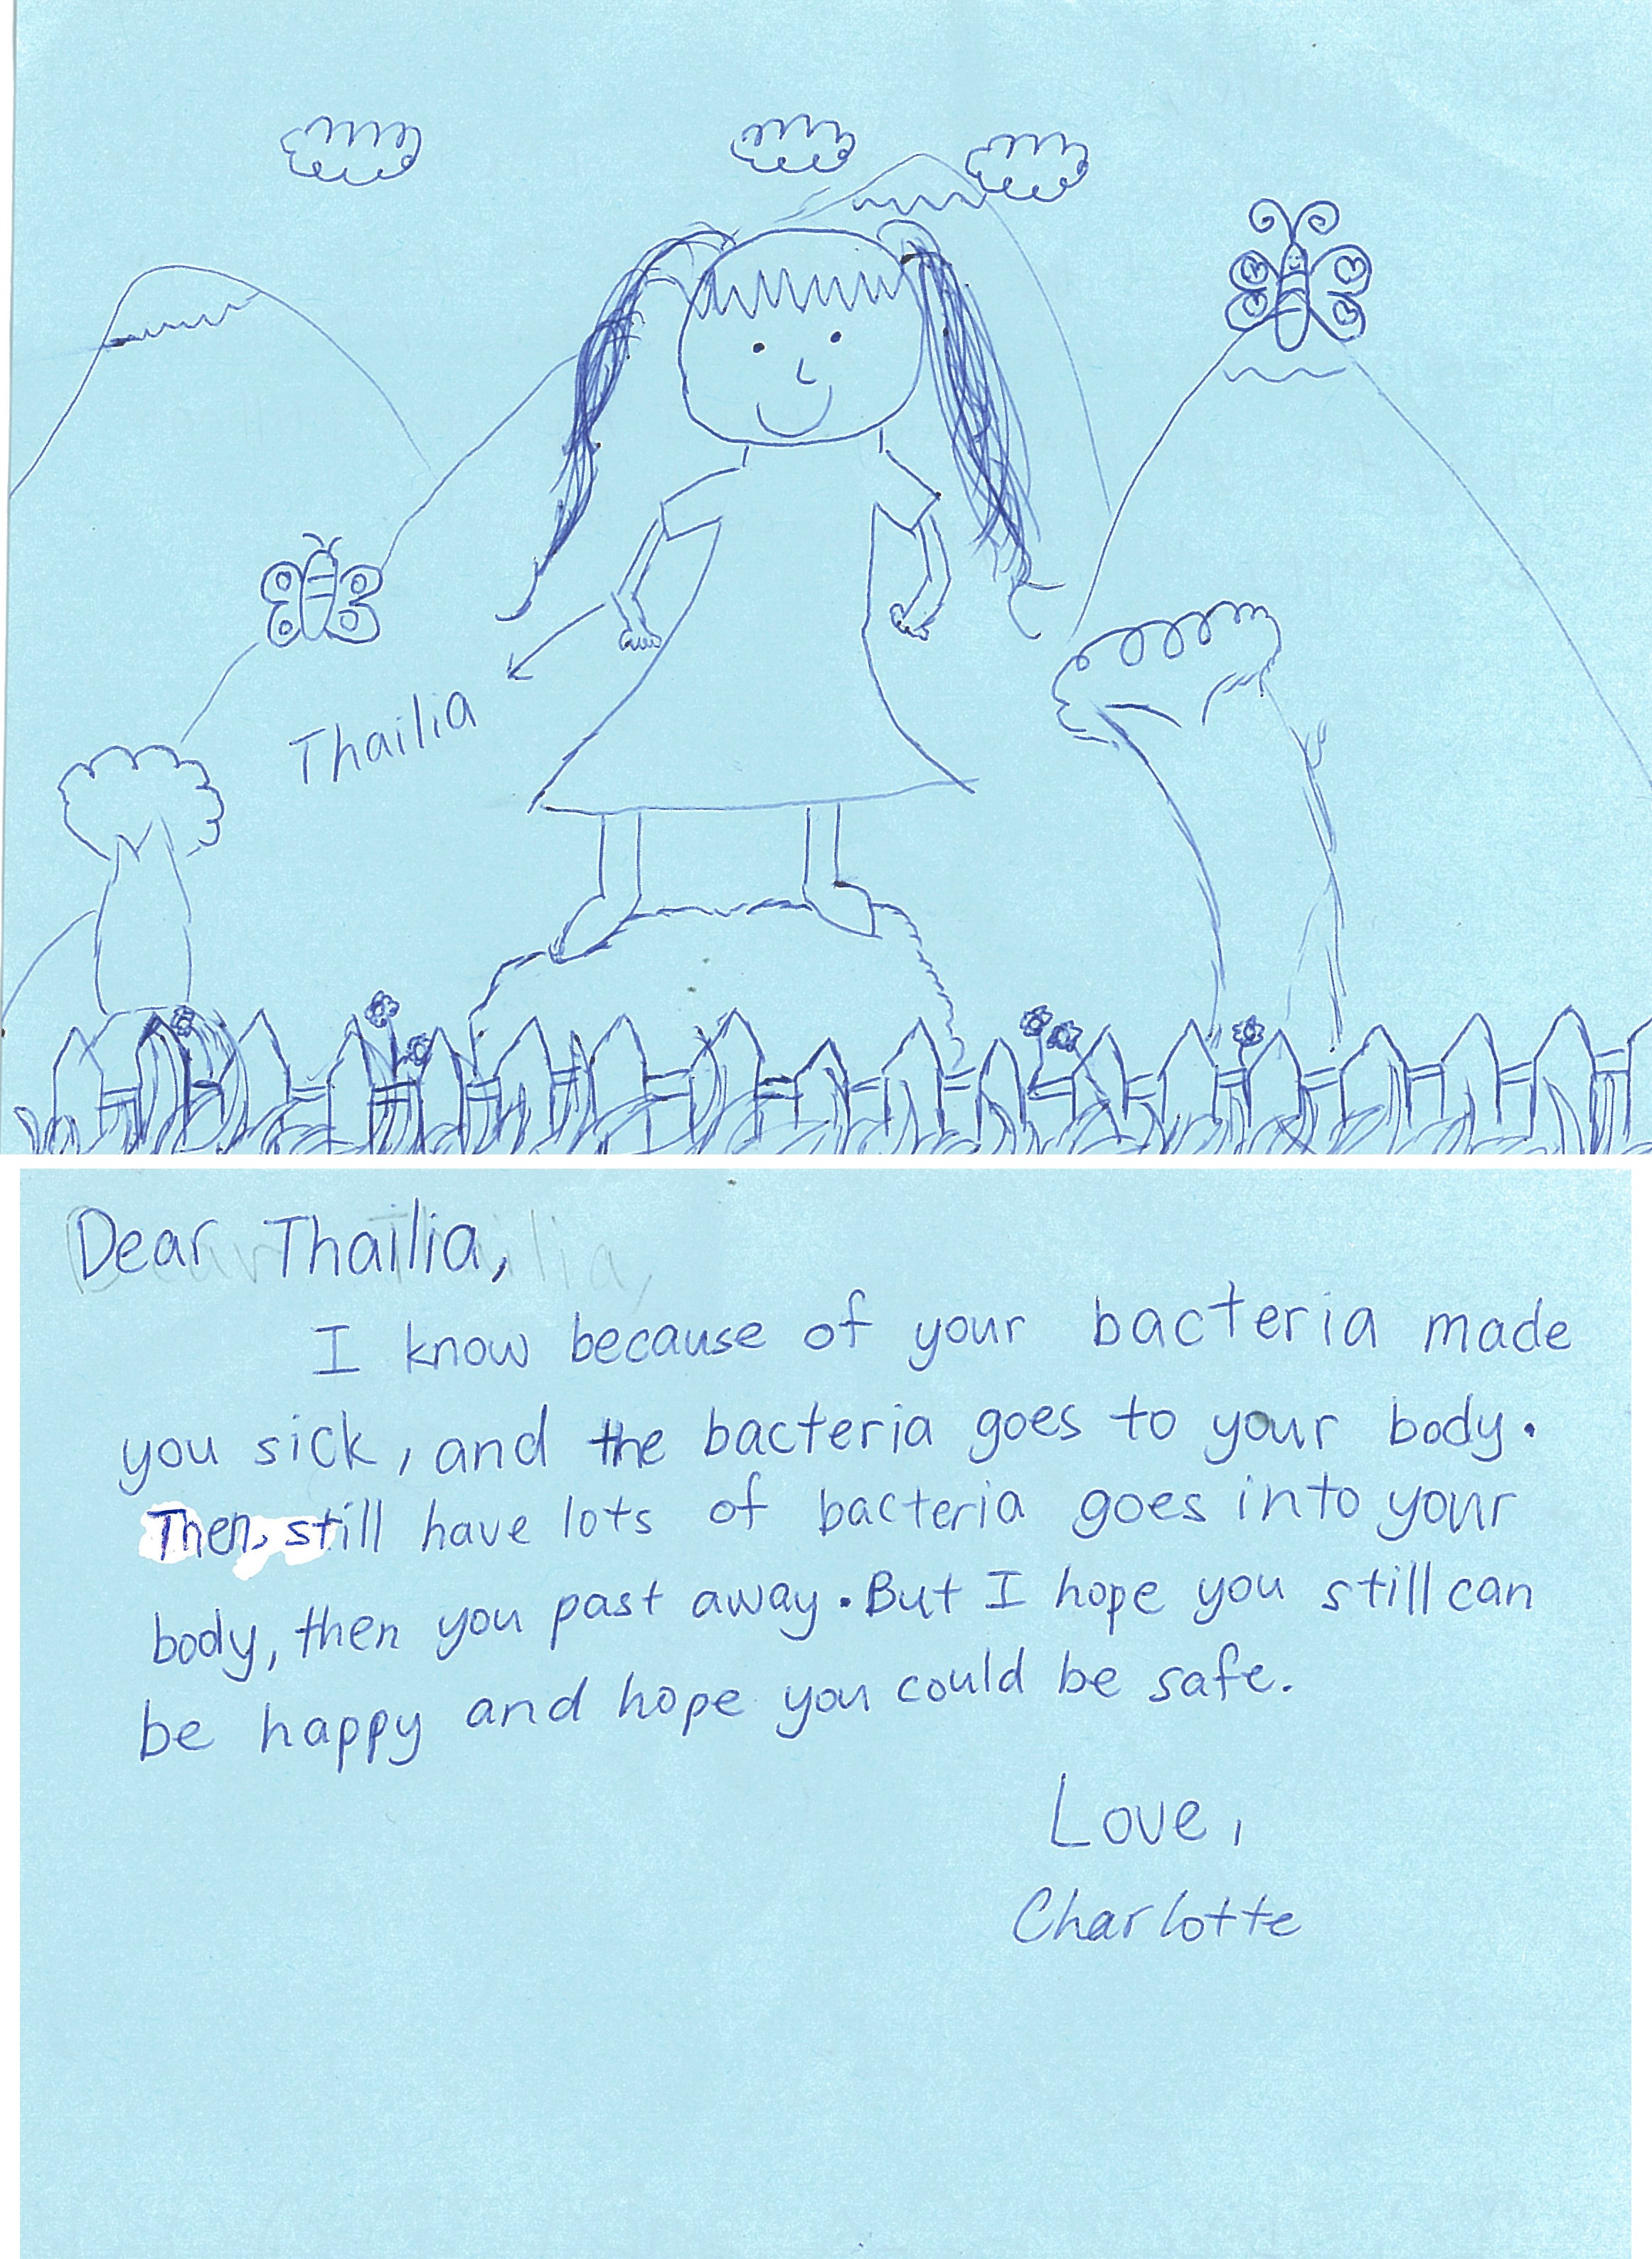 Thailia
Dear Thailia,
I know because of your bacteria made
you sick, and the bacteria goes to your body.
Then, still have lots of bacteria goes into your
body, then you past away. But I hope you still can
be happy and hope you could be safe.
Love,
Charlotte